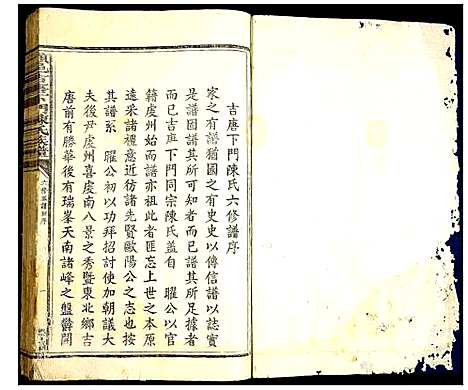 吉唐下門陳氏六修譜序
家之有譜猶國之有史史以傳信譜以誌實
是譜因其所可據者書其所足據者
已吉唐下門同宗陳氏蓋自 曜公以官
籍虔州始而譜亦祖此者匪忘上世之本原
遠采諸禮意近彷諸先賢歐陽公之志也
其譜系 曜公初以功拜招討使加朝議大
夫後尹虔州喜虔南八景之秀暨東北鄉吉
唐前有勝華後有瑞峯天南諸峰之盤鬱開
陳氏族譜
六修
序
一